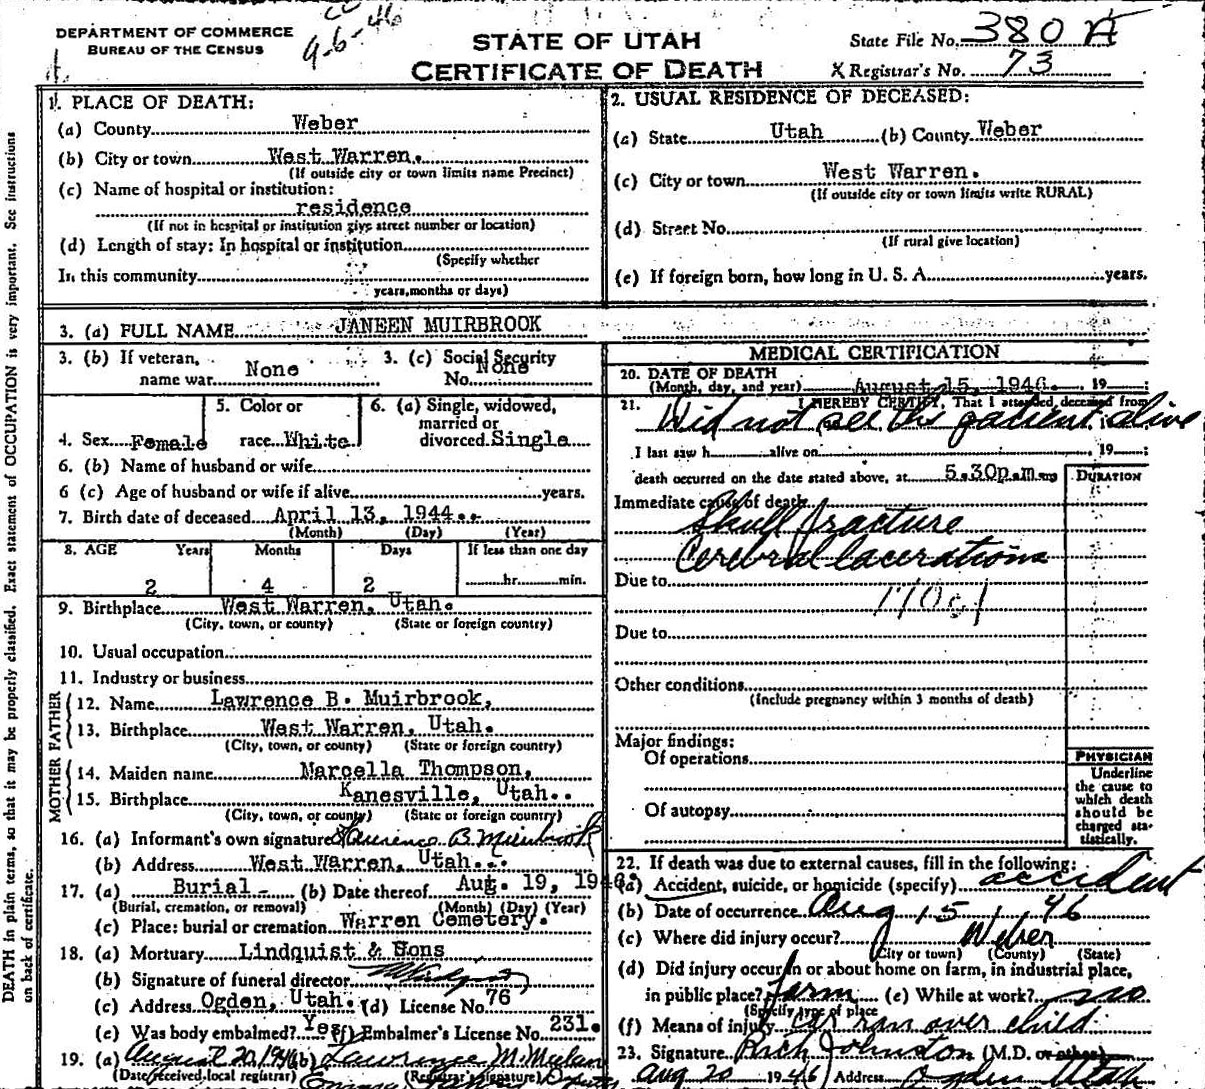 DEPARTMENT OF COMMERCE
BUREAU OF THE CENSUS
9-6-46
STATE OF UTAH
CERTIFICATE OF DEATH
State File No. 380 A
X Registrar's No. 73
DEATH in plain terms, so that it may be properly classified. Exact statement of OCCUPATION is very important. See instructions
on back of certificate.
1. PLACE OF DEATH:
(a) County Weber
(b) City or town West Warren.
(If outside city or town limits name Precinct)
(c) Name of hospital or institution:
residence
(If not in hospital or institution give street number or location)
(d) Length of stay: In hospital or institution
(Specify whether
In this community
years, months or days)
2. USUAL RESIDENCE OF DECEASED:
(a) State Utah (b) County Weber
(c) City or town West Warren.
(If outside city or town limits write RURAL)
(d) Street No.
(If rural give location)
(e) If foreign born, how long in U. S. A. years.
3. (a) FULL NAME JANEEN MUIRBROOK
3. (b) If veteran, name war None
3. (c) Social Security No. None
4. Sex Female
5. Color or race White
6. (a) Single, widowed, married or divorced Single
6. (b) Name of husband or wife
6 (c) Age of husband or wife if alive years.
7. Birth date of deceased April 13, 1944..
(Month) (Day) (Year)
8. AGE Years Months Days If less than one day
2 4 2 hr. min.
9. Birthplace West Warren, Utah.
(City, town, or county) (State or foreign country)
10. Usual occupation
11. Industry or business
FATHER
12. Name Lawrence B. Muirbrook,
13. Birthplace West Warren, Utah.
(City, town, or county) (State or foreign country)
MOTHER
14. Maiden name Marcella Thompson,
15. Birthplace Kanesville, Utah..
(City, town, or county) (State or foreign country)
16. (a) Informant's own signature Lawrence B. Muirbrook
(b) Address West Warren, Utah...
17. (a) Burial (b) Date thereof Aug. 19, 1946.
(Burial, cremation, or removal) (Month) (Day) (Year)
(c) Place: burial or cremation Warren Cemetery.
18. (a) Mortuary Lindquist & Sons
(b) Signature of funeral director
(c) Address Ogden, Utah. (d) License No. 76
(e) Was body embalmed? Yes (f) Embalmer's License No. 231.
19. (a) August 20, 1946 (b) Lawrence M.
(Date received local registrar) (Registrar's signature)
MEDICAL CERTIFICATION
20. DATE OF DEATH
(Month, day, and year) August 15, 1946. 19
21. I HEREBY CERTIFY, That I attended deceased from
Did not see this patient alive
I last saw h alive on 19
death occurred on the date stated above, at 5.30p.m.
DURATION
Immediate cause of death
Skull fracture
Cerebral lacerations
Due to
Due to
Other conditions
(Include pregnancy within 3 months of death)
Major findings:
Of operations
Of autopsy
PHYSICIAN
Underline
the cause to
which death
should be
charged sta-
tistically.
22. If death was due to external causes, fill in the following:
(a) Accident, suicide, or homicide (specify) accident
(b) Date of occurrence Aug 15, 46
(c) Where did injury occur? Weber
(City or town) (County) (State)
(d) Did injury occur in or about home on farm, in industrial place,
in public place? farm (e) While at work? no
(Specify type of place
(f) Means of injury car ran over child
23. Signature Rich Johnston (M.D. or other)
Aug 20 1946 Address Ogden Utah